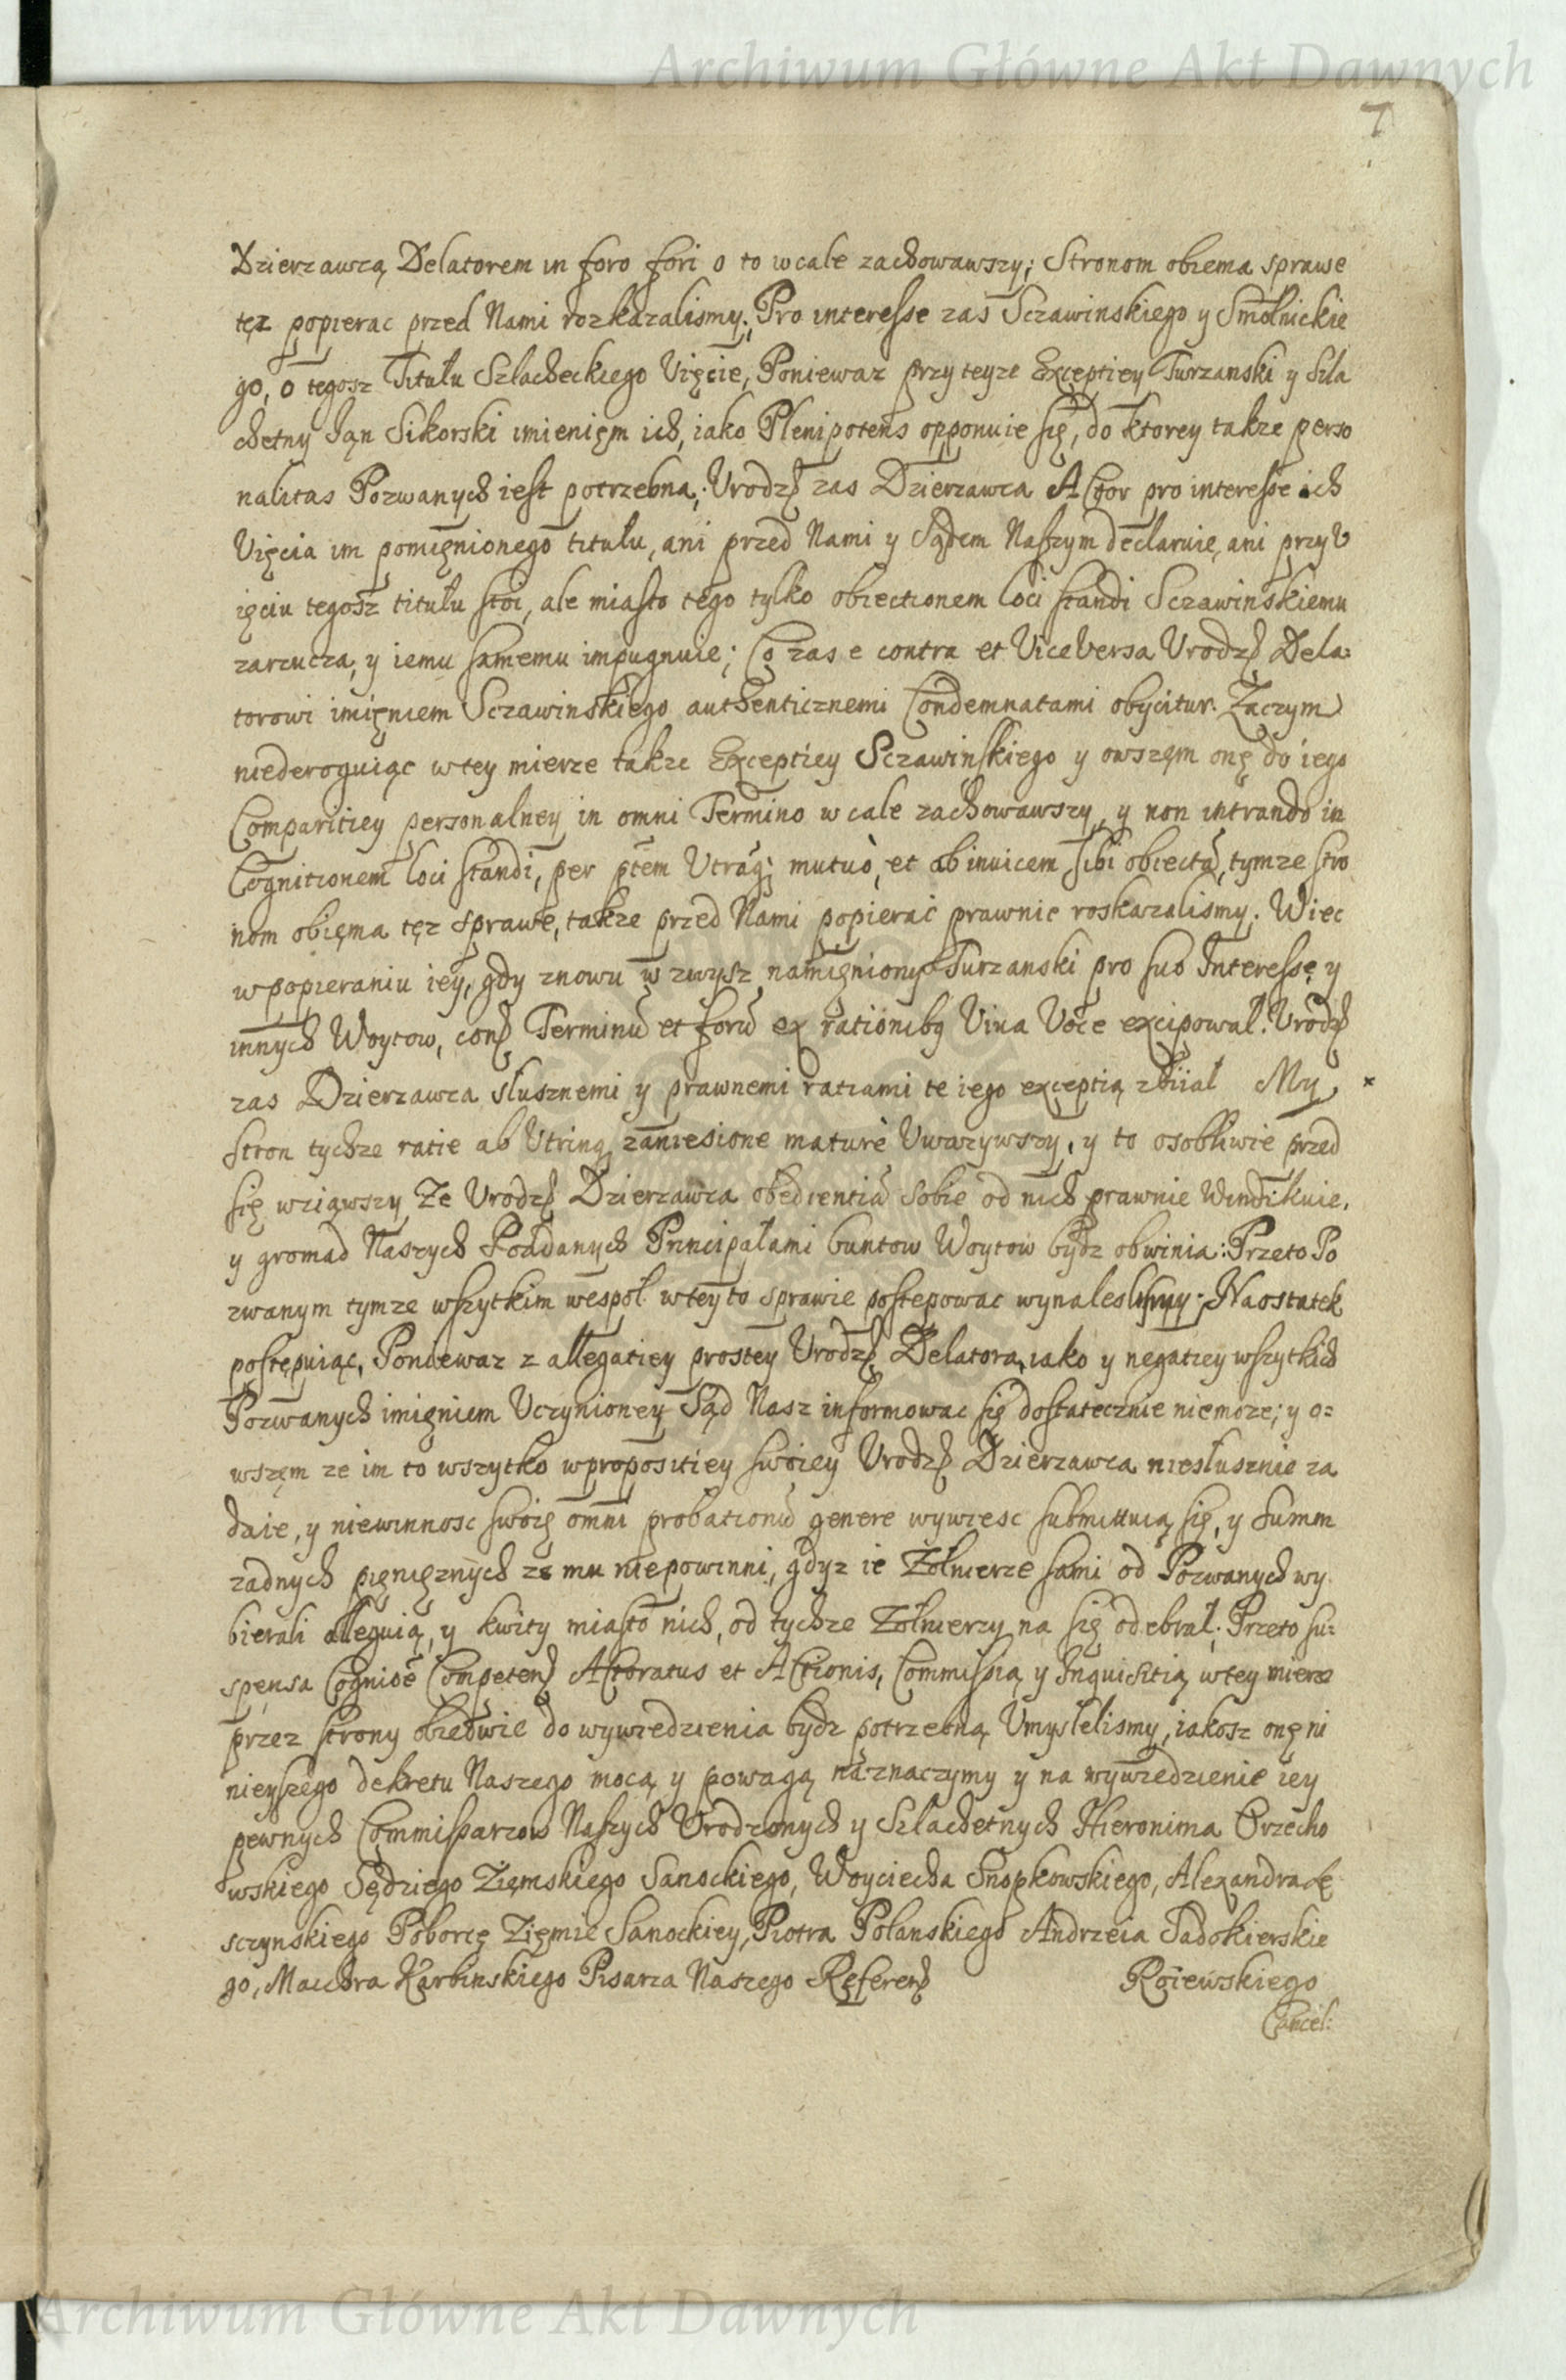 Archiwum Główne Akt Dawnych
7
Dzierzawcą Delatorem in foro fori o to wcale zachowawszy; Stronom obiema sprawe
tęz popierac przed Nami rozkazalismy; Pro interesse zas Sczawinskiego y Smolnickie
go, o tegosz Titułu Szlacheckiego Vięcie, Poniewaz przy teyze Exceptiey Turzanski y Szla
chetny Ian Sikorski imienięm ich, iako Plenipotens opponuie się, do ktorey takze perso
nalitas Pozwanych iest potrzebna; Vrodz zas Dzierzawca Actor pro interesse ich
Vięcia im pomięnionego titułu, ani przed Nami y Sądem Naszym declaruie, ani przy V
ięciu tegosz titułu stoi, ale miasto tego tylko obiectionem loci standi Sczawinskiemu
zarzucza, y iemu samemu impugnuie; Co zas e contra et Viceversa Vrodz Dela:
torowi imięniem Sczawinskiego authenticznemi Condemnatami obijcitur. Zaczym
niederoguiąc wtey mierze takze Exceptiey Sczawinskiego y owszęm onę do iego
Comparitiey personalney in omni Termino w cale zachowawszy, y non intrando in
Cognitionem loci standi, per ptem Utramq; mutuò, et ab inuicem sibi obiecta, tymze stro
nom obięma tęz sprawe, takze przed Nami popierać prawnie roskazalismy. Wiec
wpopieraniu iey, gdy znowu w zwysz namięniony Turzanski pro suo Interesse y
innych Woytow, cond Terminu et foru ex rationibq Viua Voce excipował. Vrodz
zas Dzierzawca słusznemi y prawnemi ratiami te iego exceptią zbiiał My x
stron tychze ratie ab Utrinq zaniesione maturè Uwazywszy, y to osobliwie przed
się wziąwszy Ze Vrodz Dzierzawca obedientia sobie od nich prawnie Windikuie,
y gromad Naszych Poddanych Principałami buntow Woytow bydz obwinia: Przeto Po
zwanym tymze wszytkim wespoł wteyto sprawie postepowac wynaleslismy. Naostatek
postępuiąc, Poniewaz z allegatiey prostey Vrodz Delatora, iako y negatiey wszytkich
Pozwanych imięniem Uczynioney Sąd Nasz informowac się dostatecznie niemoze; y o=
wszęm ze im to wszytko wpropositiey swoiey Vrodz Dzierzawca niesłusznie za
daie, y niewinnosc swoię omni probationu genere wywiesc submittuią się, y Summ
zadnych pięnięznych ze mu niepowinni, gdyz ie Zołnierze sami od Pozwanych wy
bierali alleguią, y kwity miasto nich, od tychze Zołnierzy na się odebrał; Przeto su:
spensa Cognioe Competen Actoratus et Actionis, Commissią y Inquisitią wtey mierze
przez strony obiedwie do wywiedzienia bydz potrzebną Umyslelismy, iakosz onę ni
nieyszego dekretu Naszego mocą y powagą naznaczymy y na wywiedzienie iey
pewnych Commissarzow Naszych Vrodzonych y Szlachetnych Hieronima Orzecho
wskiego Sędziego Ziemskiego Sanockiego, Woyciecha Snopkowskiego, Alexandra Lę
sczynskiego Poborcę Zięmie Sanockiey, Piotra Polanskiego Andrzeia Sadokierskie
go, Maichra Karbinskiego Pisarza Naszego Referen Roiewskiego
Cancel:
Archiwum Główne Akt Dawnych